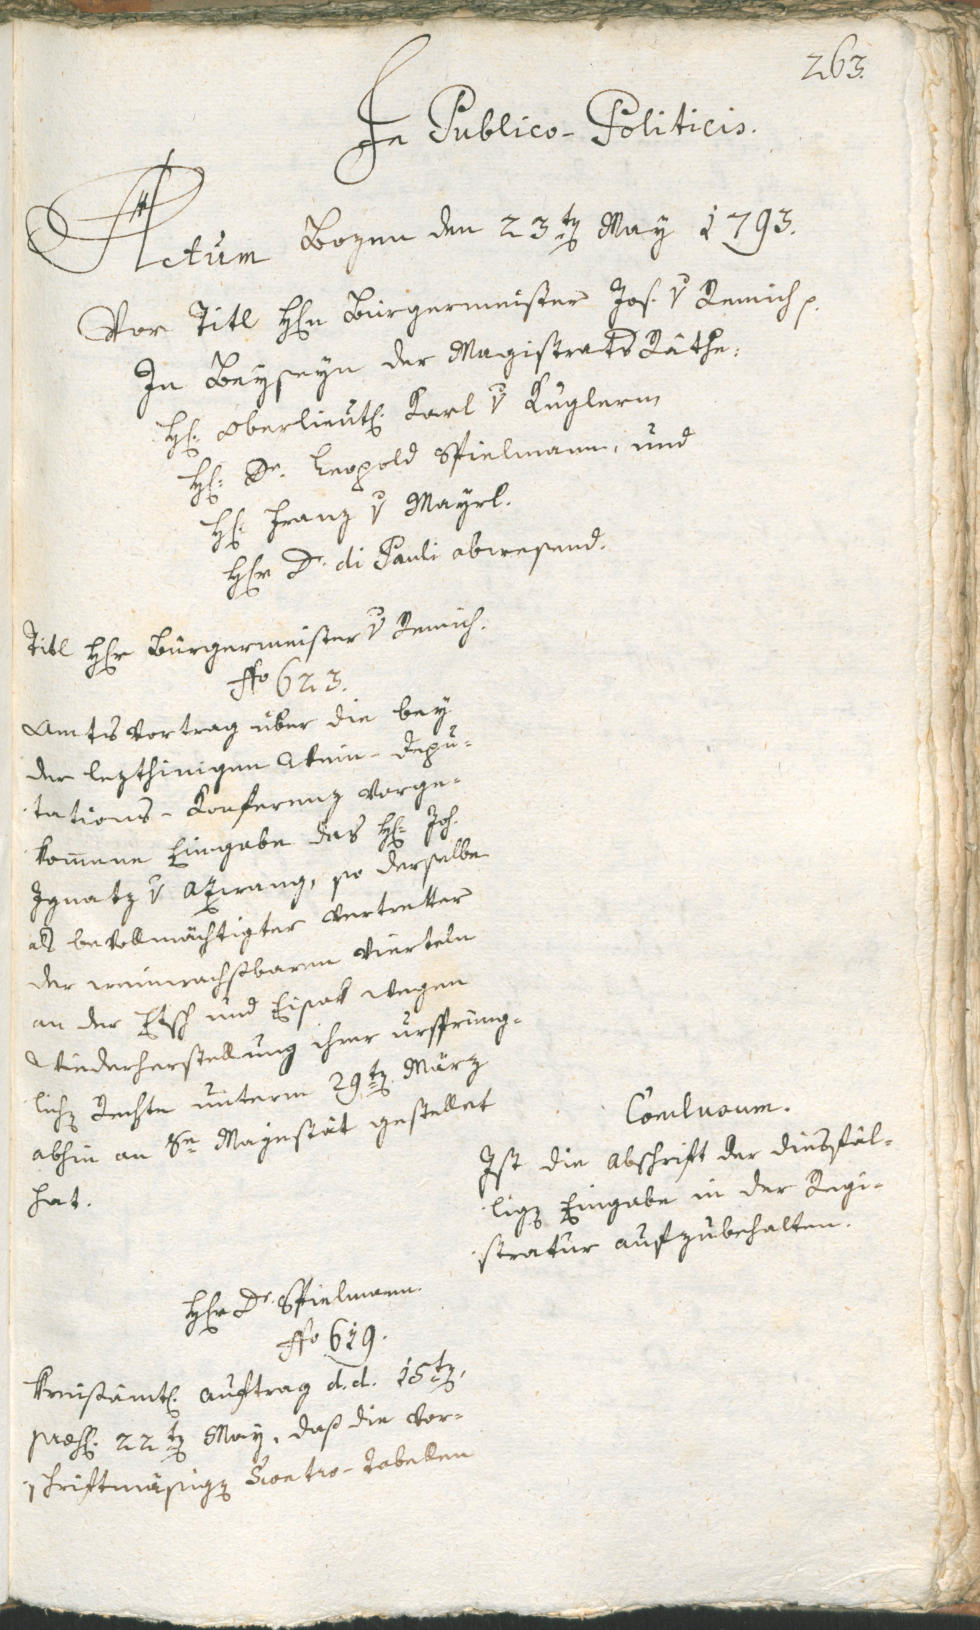 263.
In Publico-Politicis.
Actum Bozen den 23ten May 1793.
Vor Titl H(er)rn Bürgermeister Jos. v Remich p.
In Beyseyn der Magistrats Räthe:
H: Oberlieut: Karl v Kuglern
H: Dr. Leopold Spielmann, und
H: Franz v Mayrl.
Hr Dr. di Pauli abwesend.
Titl Hr Bürgermeister v Remich.
No 623.
Amtsvortrag über die bey
der lezthinigen Wein-Depu-
tations-Konferenz vorge-
kommene Eingabe das H: Joh.
Ignatz v Azwang, so derselbe
als bevollmächtigter Vertretter
der weinwachsbaren Vierteln
an der Etsch und Eisak wegen
Wiederherstellung ihrer ursprüng-
lichen Rechte unterm 29ten März
abhin an Se Mayestät gestellet
hat.
Conclusum.
Ist die Abschrift der diesfäl-
ligen Eingabe in der Regi-
stratur aufzubehalten.
Hr Dr. Spielmann.
No 619.
Kreisämtl: Auftrag d.d. 15ten,
praes: 22ten May, daß die vor-
schriftmäsigen Scontro-Tabellen